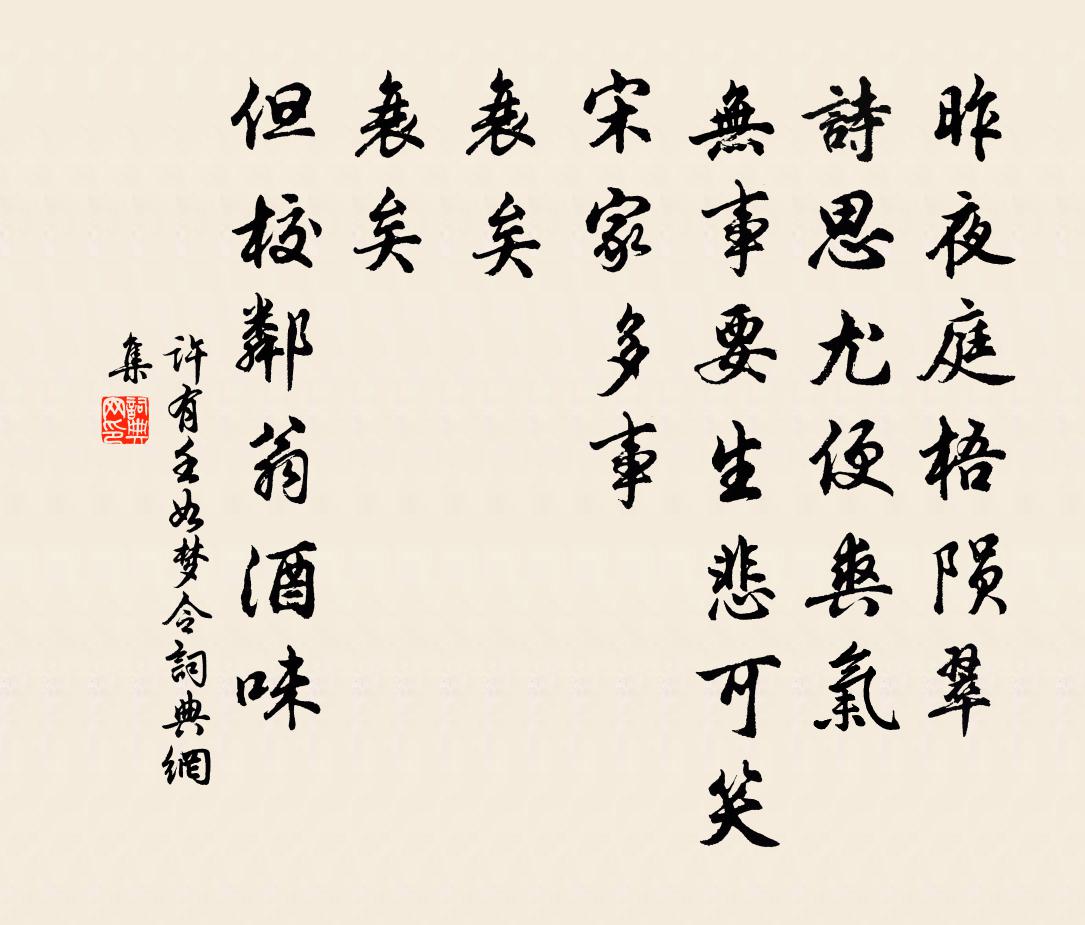 昨夜庭梧陨翠
詩思尤便爽氣
無事要生悲可笑
宋家多事
衰矣
衰矣
但校鄰翁酒味
許有壬如梦令詞典網
集
詞典
网印